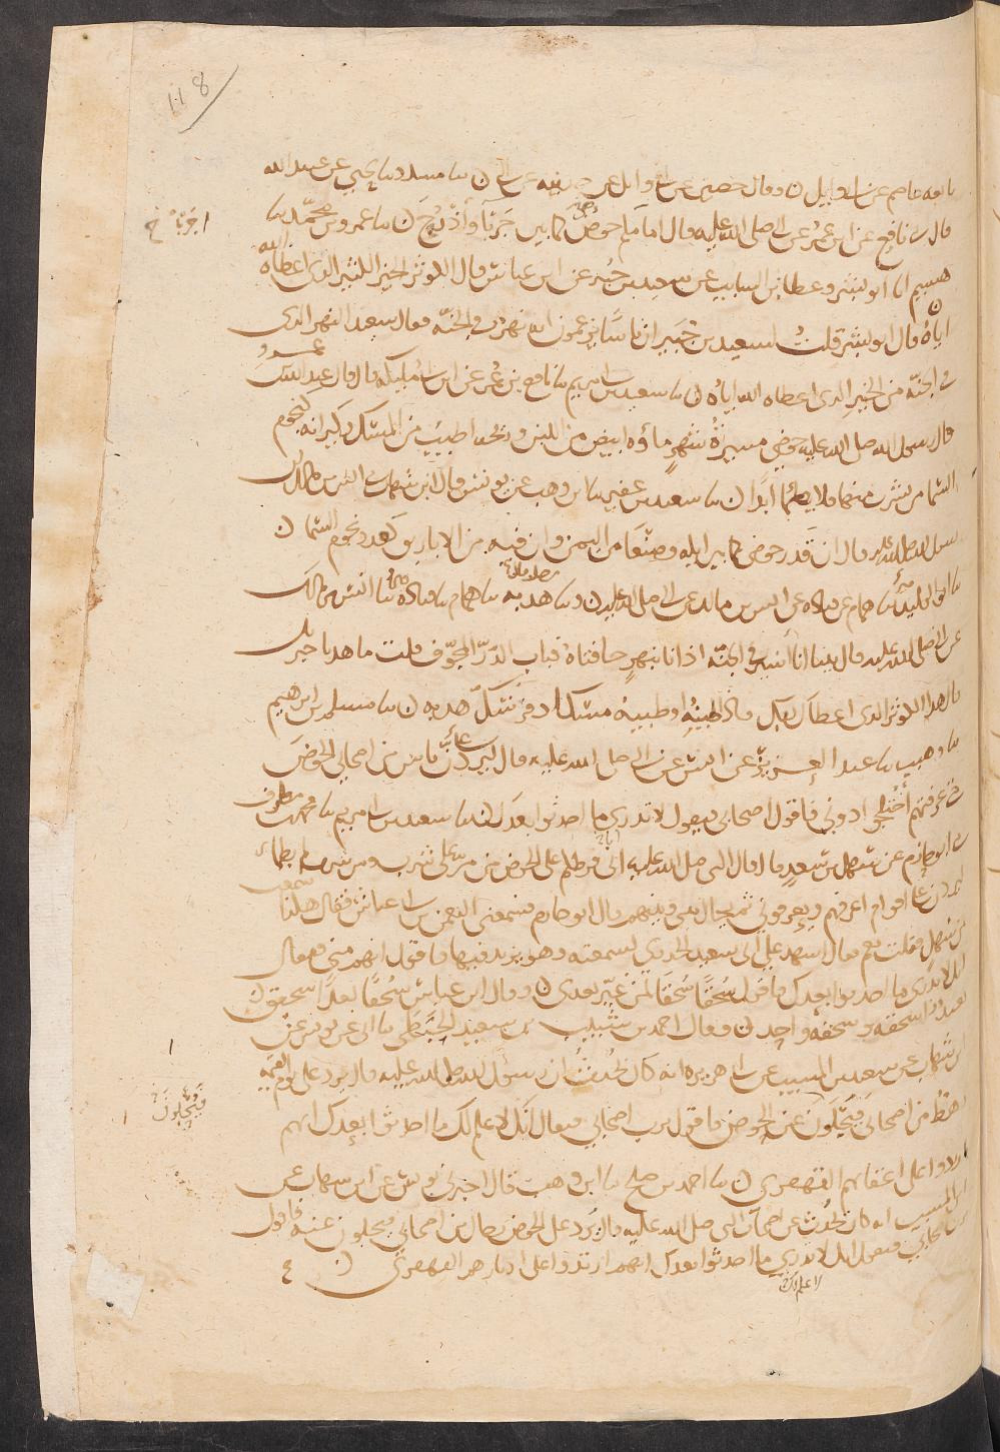 118
تابعه عاصم عن ابي وايل ن وقال حصين عن ابي وايل عن حذيفة عن النبي ن نا مسدد نا يحيى عن عبيد الله
قال ني نافع عن ابن عمر عن النبي صلى الله عليه قال امامكم حوض كما بين جَرْبَا وأَذْرُحَ ن نا عمرو بن محمد نا
هشيم انا ابو بشر وعطا بن السايب عن سعيد بن جبير عن ابن عباس قال الكوثر الخير الكثير الذي اعطاه الله
اياه قال ابو بشر قلت لسعيد بن جبير ان ناسا يزعمون انه نهر في الجنة فقال سعيد النهر الذي
في الجنة من الخير الذي اعطاه الله اياه ن نا سعيد بن ابي مريم نا نافع بن عمر عن ابن ابي مليكة قال قال عبد الله بن عمرو
قال رسول الله صلى الله عليه حوضي مسيرة شهر ماؤه ابيض من اللبن وريحه اطيب من المسك وكيزانه كنجوم
السما من يشرب منها فلا يظمأ ابدا ن نا سعيد بن عفير نا ابن وهب عن يونس قال ابن شهاب ني انس بن مالك ان
رسول الله صلى الله عليه قال ان قدر حوضي كما بين ايلة وصنعا من اليمن وان فيه من الاباريق كعدد نجوم السما ن
نا ابو الوليد نا همام عن قتادة عن انس بن مالك عن النبي صلى الله عليه ن ونا هدبة نا همام نا قتادة نا انس بن مالك
عن النبي صلى الله عليه قال بينا انا اسير في الجنة اذا انا بنهر حافتاه قباب الدر المجوف قلت ما هذا يا جبريل
قال هذا الكوثر الذي اعطاك ربك فاذا طينه او طيبه مسك اذفر شك هدبة ن نا مسلم بن ابرهيم
نا وهيب نا عبد العزيز عن انس عن النبي صلى الله عليه قال ليردن علي ناس من اصحابي الحوض
حتى عرفتهم اختلجوا دوني فاقول اصحابي فيقول لا تدري ما احدثوا بعدك ن نا سعيد بن ابي مريم نا محمد بن مطرف
ني ابو حازم عن سهل بن سعد قال قال النبي صلى الله عليه اني فرطكم على الحوض من مر علي شرب ومن شرب لم يظمأ
ليردن علي اقوام اعرفهم ويعرفوني ثم يحال بيني وبينهم قال ابو حازم فسمعني النعمن بن ابي عياش فقال هكذا سمعت
من سهل فقلت نعم فقال اشهد على ابي سعيد الخدري لسمعته وهو يزيد فيها فاقول انهم مني فيقال
انك لا تدري ما احدثوا بعدك فاقول سُحْقًا سُحْقًا لمن غيّر بعدي ن وقال ابن عباس سُحْقًا بعدًا سحيق
بعيد واسحقه وسحقه واحد ن وقال احمد بن شبيب بن سعيد الحَبَطي نا ابي عن يونس عن
ابن شهاب عن سعيد بن المسيب عن ابي هريرة انه كان يحدث ان رسول الله صلى الله عليه قال يرد علي يوم القيمة
رهط من اصحابي فيحلّون عن الحوض فاقول يا رب اصحابي فيقال انك لا علم لك بما احدثوا بعدك انهم
ارتدوا على اعقابهم القهقرى ن نا احمد بن صلح نا ابن وهب قال اخبرني يونس عن ابن شهاب عن
ابن المسيب انه كان يحدث عن اصحاب النبي صلى الله عليه قال يرد على الحوض رجال من اصحابي فيحلون عنه فاقول
يا رب اصحابي فيقول انك لا تدري ما احدثوا بعدك انهم ارتدوا على ادبارهم القهقرى ن
لا علم لك
فيُجْلَوْنَ